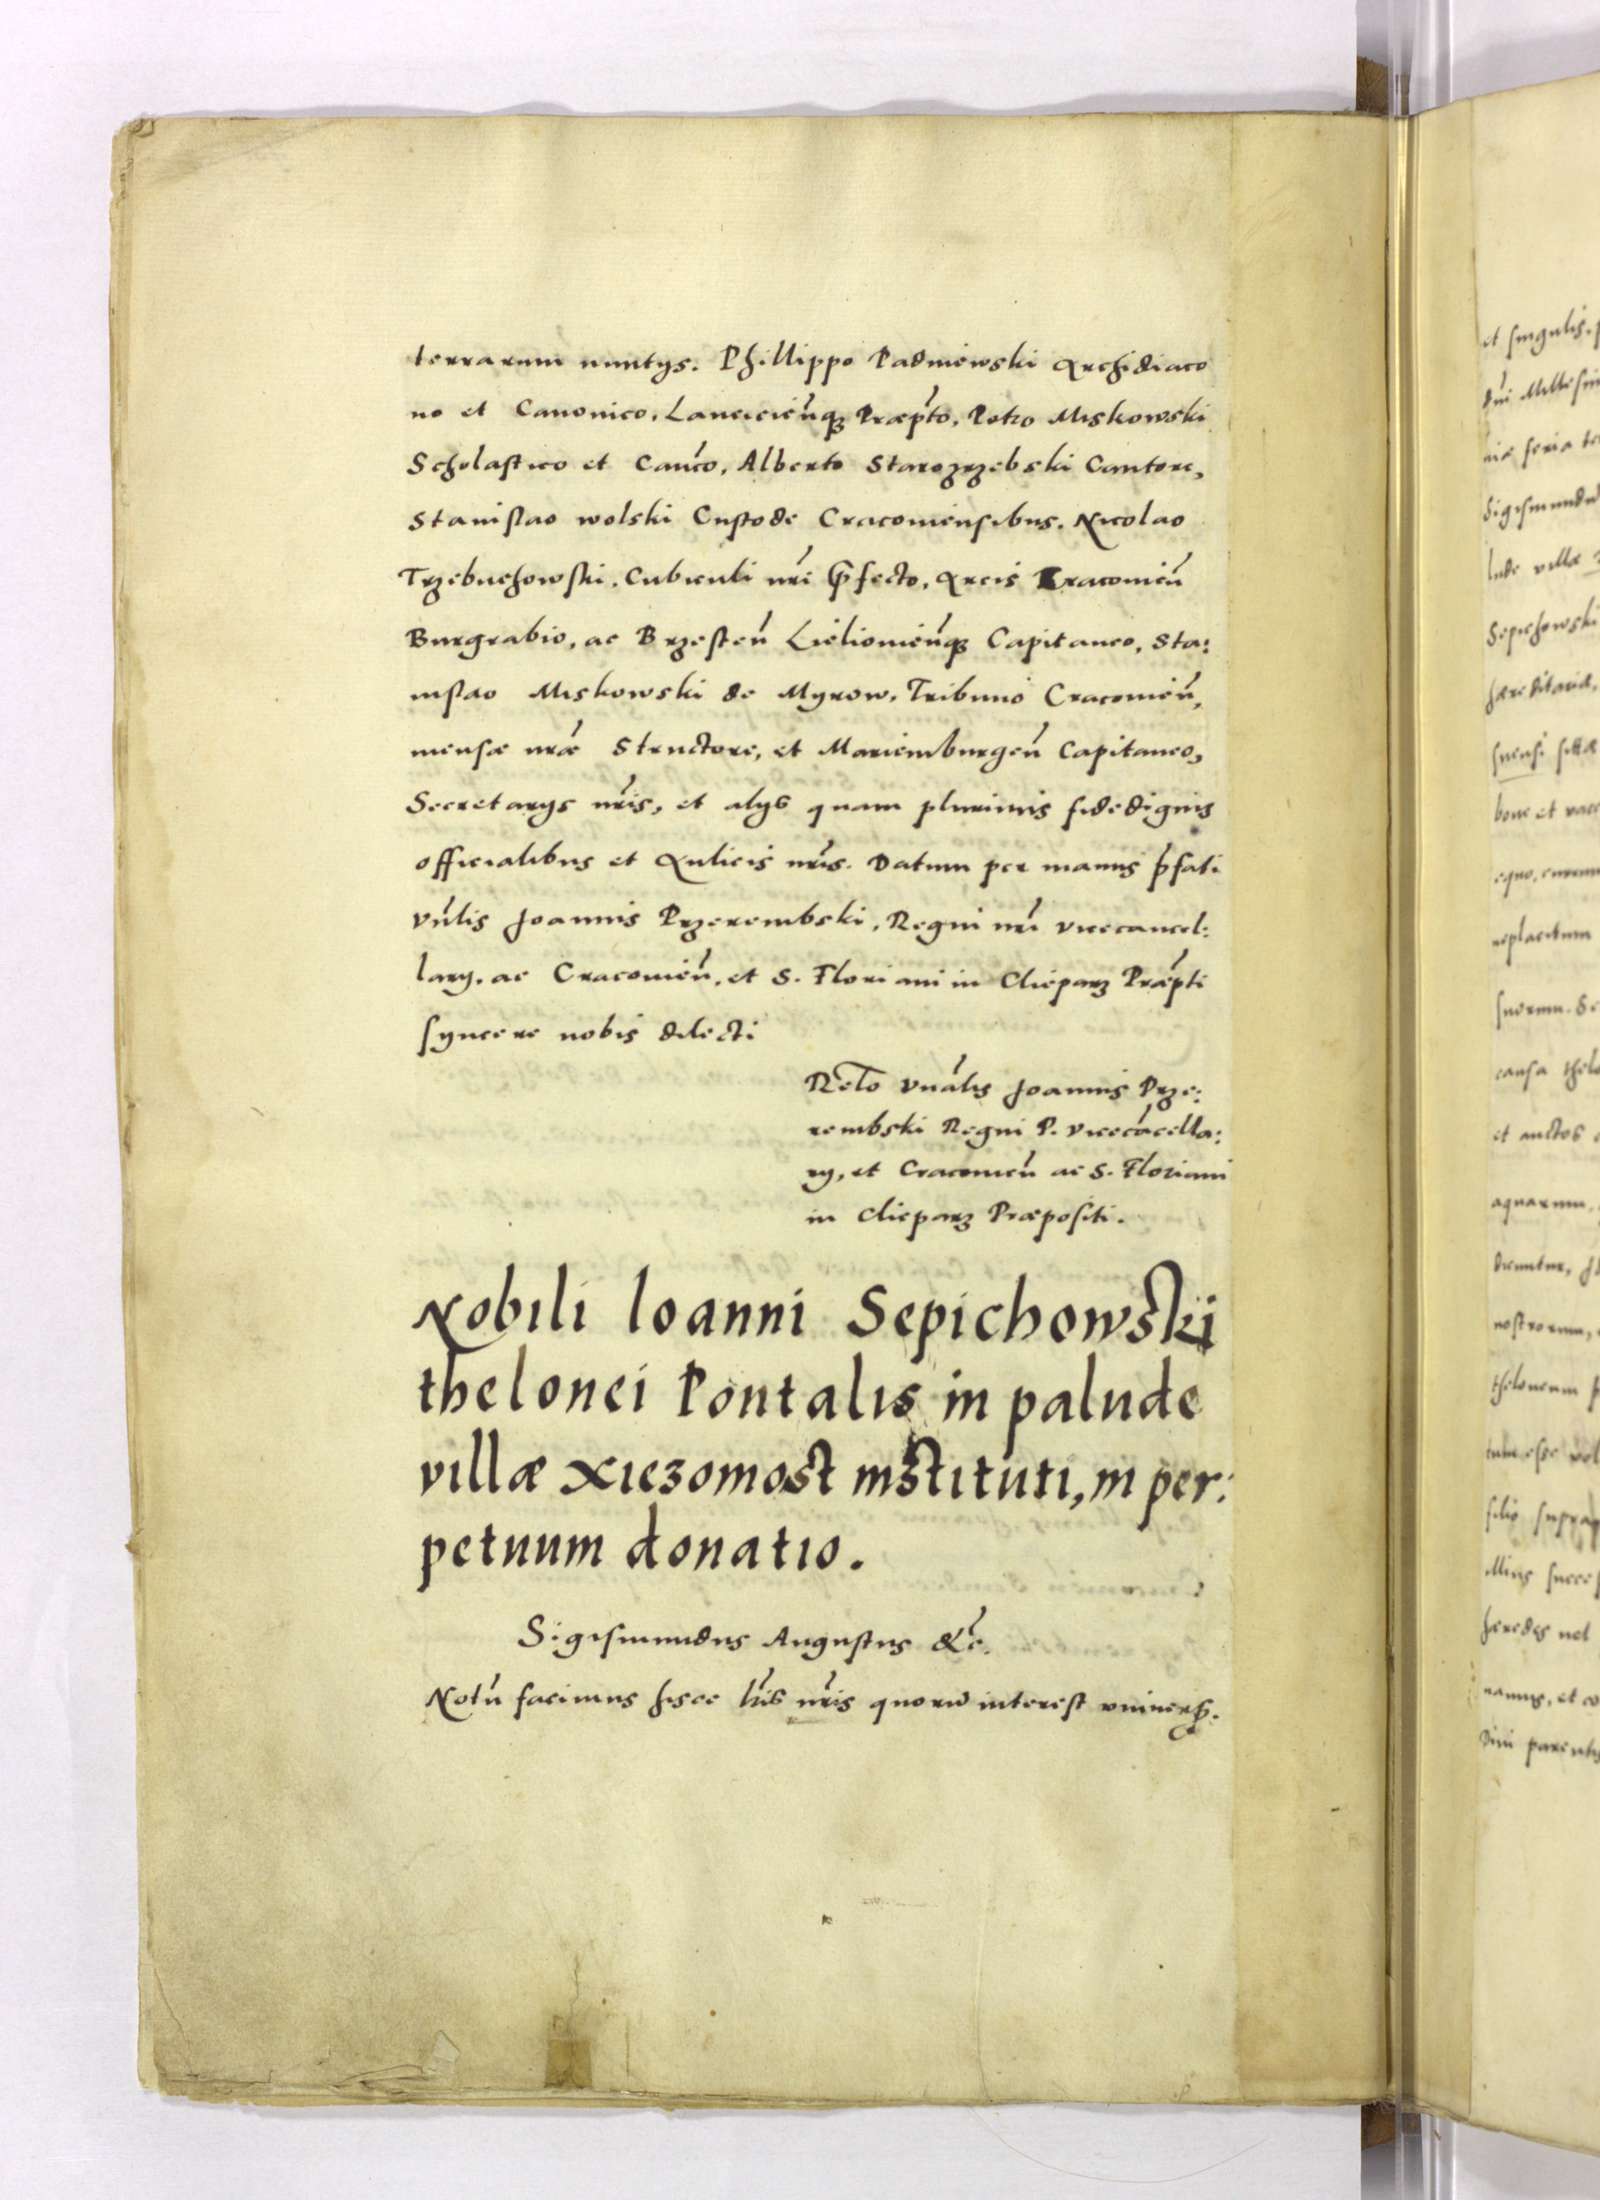 terrarum nuntijs. Phillippo Padniewski Archidiaco
no et Canonico, Lanciciēnq; Præpto, Petro Miskowski
Scholastico et Canco, Alberto Starozrzebski Cantore,
Stanislao wolski Custode Cracoviensibus. Nicolao
Trzebuchowski. Cubiculi nri Præfecto, Arcis Cracovień
Burgrabio, ac Brzesteń Lielioviēnq; Capitaneo, Sta:
nislao Miskowski de Myrow, Tribuno Cracovień,
mensæ nræ Structore, et Mariemburgeń Capitaneo,
Secretarijs nris, et alijs quam plurimis fidedignis
officialibus et Aulicis nris. Datum per manus pfati
Vnlis Joannis Przerembski, Regni nri vicecancel:
larij. ac Cracovień, et S. Floriani in Clieparz Præpti
syncere nobis dilecti
Relo vnalis Joannis Prze:
rembski Regni P. vicecacella:
rij, et Cracovień ac S. Floriani
in Clieparz Præpositi.
Nobili Ioanni Sepichowskij
thelonei Pontalis in palude
villæ Xiezomost instituti, in per:
petuum donatio.
Sigismundus Augustus &c.
Notū facimus hisce lris nris quorū interest vniversis.
et singulis.
dni Millesim
niæ feria te
Sigismundū
lude villæ
Sepichowski
hæreditariæ,
suensi sittæ
bone et
equo,
replacitum
suorum. Se
causa thelo
et auctos
aquarum,
dicuntur,
nostrorum,
theloneum
tum esse vol
filio supra
illius succes
heredes vel
namus, et co
Divi parentis